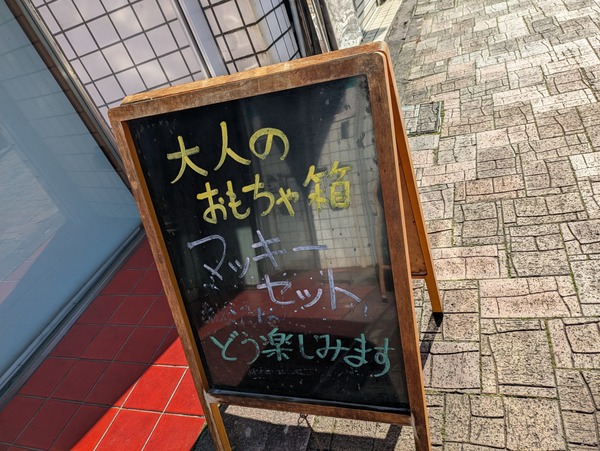 大人の
おもちゃ箱
マッキー
セット
どう楽しみます